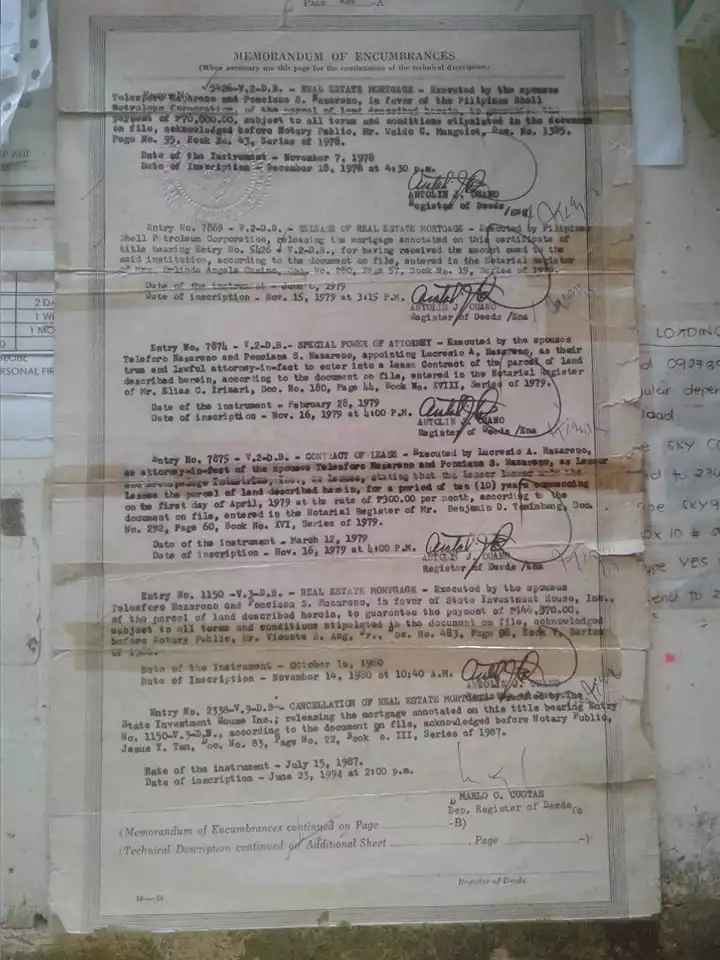 PAGE -A
MEMORANDUM OF ENCUMBRANCES
(When necessary use this page for the continuation of the technical description)
5426-V.2-D.B. - REAL ESTATE MORTGAGE - Executed by the spouses
Telesforo Nazareno and Ponciana S. Nazareno, in favor of the Pilipinas Shell
Petroleum Corporation, of the parcel of land described herein, to guarantee the
payment of ₱70,000.00, subject to all terms and conditions stipulated in the document
on file, acknowledged before Notary Public, Mr. Waldo C. Doc. No. 1385,
Page No. 95, Book No. 43, Series of 1978.
Date of the Instrument - November 7, 1978
Date of Inscription - December 18, 1978 at 4:30 p.m.
ANTOLIN J.
Register of Deeds/Ena
Entry No. 7869 - V.2-D.B. - RELEASE OF REAL ESTATE MORTGAGE - Executed by Pilipinas
Shell Petroleum Corporation, releasing the mortgage annotated on this certificate of
title bearing Entry No. 5426 - V.2-D.B., for having received the amount owed to the
said institution, according to the document on file, entered in the Notarial Register
of Mrs. Orlinda Angela Doc. No. 280, Page 57, Book No. 19, Series of 1979.
Date of the instrument - June 6, 1979
Date of inscription - Nov. 15, 1979 at 3:15 P.M.
ANTOLIN J.
Register of Deeds/Ena
Entry No. 7874 - V.2-D.B.- SPECIAL POWER OF ATTORNEY - Executed by the spouses
Telesforo Nazareno and Ponciana S. Nazareno, appointing Lucresio A. Nazareno, as their
true and lawful attorney-in-fact to enter into a Lease Contract of the parcel of land
described herein, according to the document on file, entered in the Notarial Register
of Mr. Elias C. Doc. No. 180, Page 44, Book No. XVIII, Series of 1979.
Date of the instrument - February 28, 1979
Date of inscription - Nov. 16, 1979 at 4:00 P.M.
ANTOLIN J.
Register of Deeds/Ena
Entry No. 7875 - V.2-D.B. - CONTRACT OF LEASE - Executed by Lucresio A. Nazareno,
as attorney-in-fact of the spouses Telesforo Nazareno and Ponciana S. Nazareno, as Lessor
and Industries, Inc., as Lessee, stating that the Lessor leased unto the
Lessee the parcel of land described herein, for a period of ten (10) years commencing
on the first day of April, 1979 at the rate of ₱300.00 per month, according to the
document on file, entered in the Notarial Register of Mr. Benjamin D. Doc.
No. 292, Page 60, Book No. XVI, Series of 1979.
Date of the instrument - March 12, 1979
Date of inscription - Nov 16, 1979 at 4:00 P.M.
ANTOLIN J.
Register of Deeds /Ena
Entry No. 1150 -V.3-D.B. - REAL ESTATE MORTGAGE - Executed by the spouses
Telesforo Nazareno and Ponciana S. Nazareno, in favor of State Investment House, Inc.,
of the parcel of land described herein, to guarantee the payment of ₱146,370.00,
subject to all terms and conditions stipulated in the document on file, acknowledged
before Notary Public, Mr. Vicente B. Ang, Jr., Doc. No. 483, Page 98, Book V, Series
of 1980.
Date of the Instrument - October 16, 1980
Date of Inscription - November 14, 1980 at 10:40 A.M.
ANTOLIN J.
Entry No. 2338-V.9-D.B.- CANCELLATION OF REAL ESTATE MORTGAGE Executed by The
State Investment House Inc.; releasing the mortgage annotated on this title bearing Entry
No. 1150-V.3-D.B., according to the document on file, acknowledged before Notary Public,
Jesus Y. Tan, Doc. No. 83, Page No. 22, Book No. III, Series of 1987.
Date of the instrument - July 15, 1987.
Date of inscription - June 23, 1994 at 2:00 p.m.
MARLO O. CUGTAS
Dep. Register of Deeds
(Memorandum of Encumbrances continued on Page -B)
(Technical Description continued on Additional Sheet , Page -)
Register of Deeds
LOADING
SKY
YES